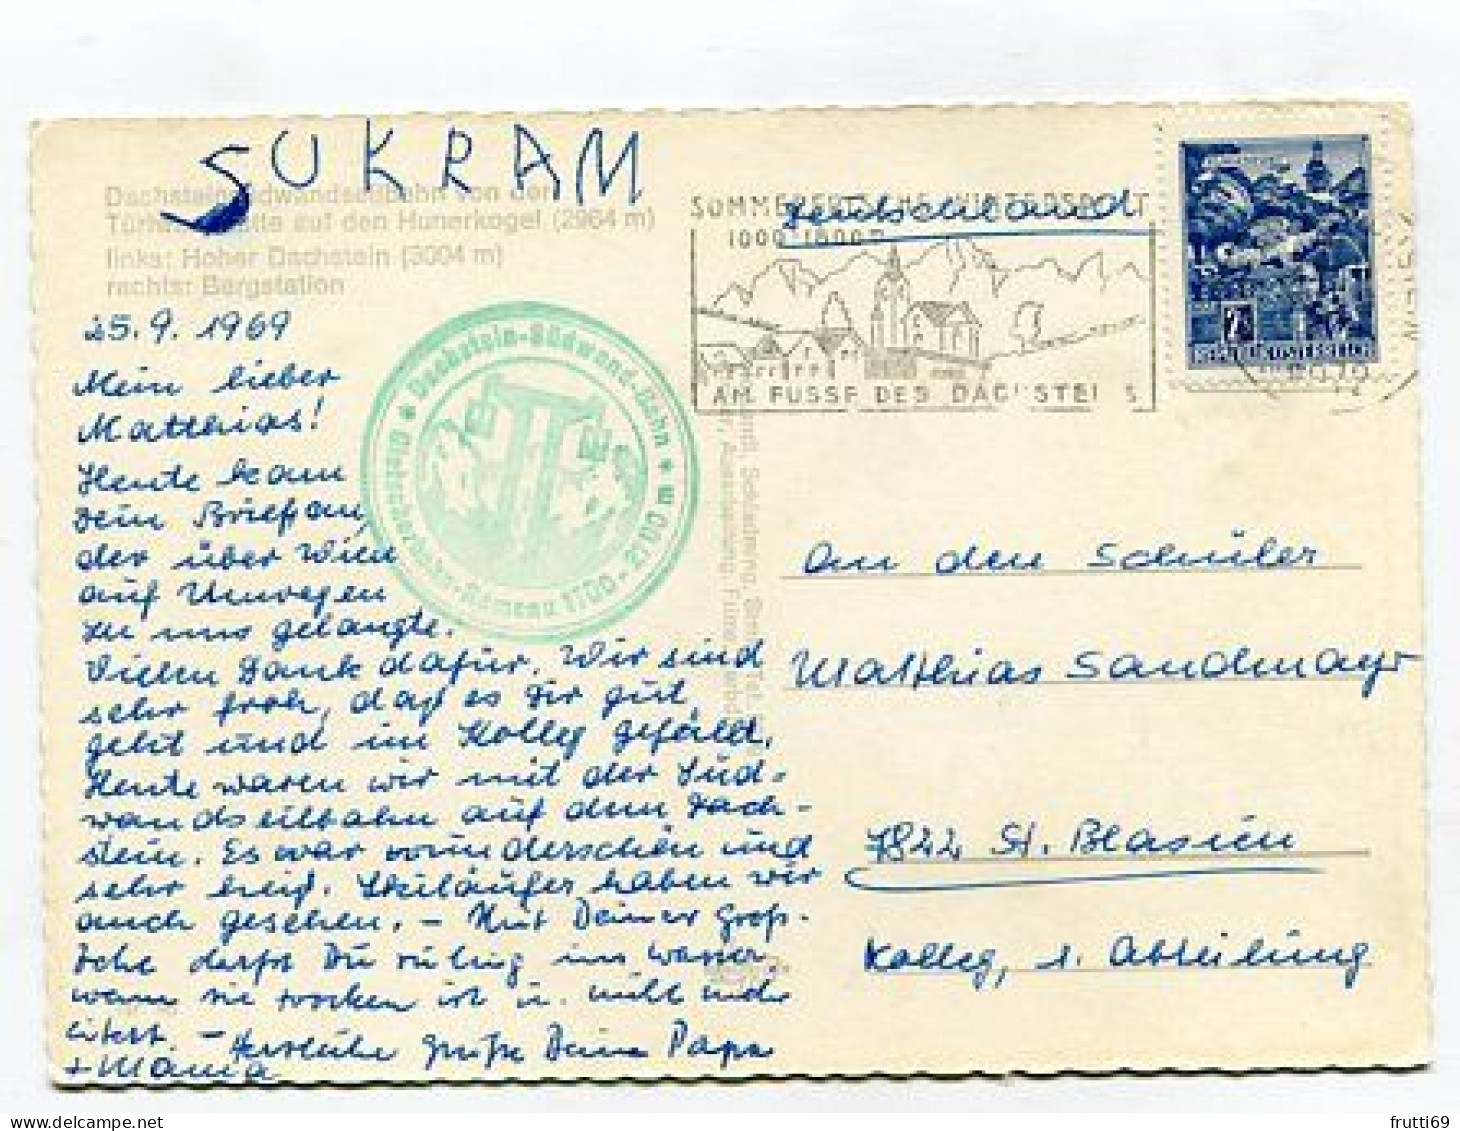 SUKRAM
Dachsteinsüdwandseilbahn von der
Türlwandhütte auf den Hunerkogel (2964 m)
links: Hoher Dachstein (3004 m)
rechts: Bergstation
25.9.1969
Mein lieber
Matthias!
Heute kam
Dein Brief an,
der über
auf Umwegen
zu uns gelangte.
Vielen Dank dafür. Wir sind
sehr froh, daß es Dir gut
geht und im Kolleg gefällt.
Heute waren wir mit der Süd-
wandseilbahn auf dem Dach-
stein. Es war wunderschön und
sehr heiß. Skiläufer haben wir
auch gesehen. – Mit Deiner
darfst Du ruhig ins Wasser,
wenn sie trocken ist u. nicht mehr
eitert. – Herzliche Grüße Deine Papa
+ Mama
Dachstein-Südwand-Bahn
Gletscherbahn-Ramsau 1700-2700 m
SOMMERFRISCHE WINTERSPORT
1000-1800 m
AM FUSSE DES DACHSTEINS
Deutschland
REPUBLIK ÖSTERREICH
8972
An den Schüler
Matthias Sandmayr
7822 St. Blasien
Kolleg, 1. Abteilung
frutti69